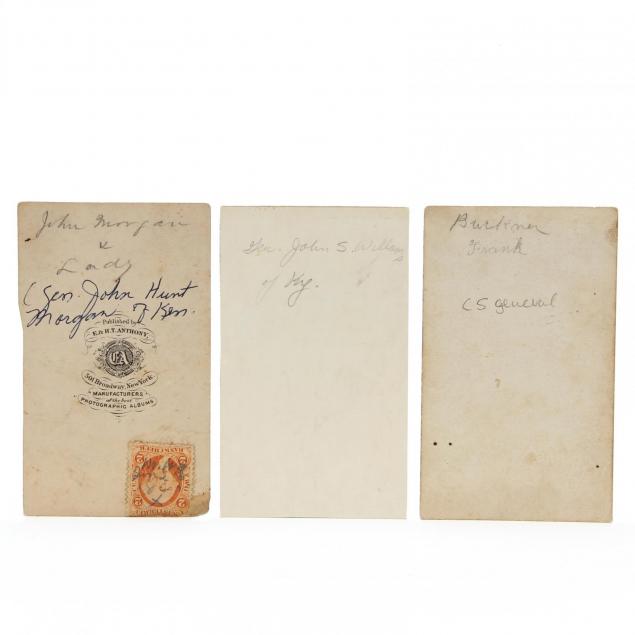 John Morgan
&
Lady
(Gen. John Hunt
Morgan of Ken.
Published by
E. & H.T. ANTHONY,
EA
501 Broadway, New York
MANUFACTURERS
of the best
PHOTOGRAPHIC ALBUMS
2
2
Gen. John S. Williams
of Ky.
Buckner
Frank
CS general